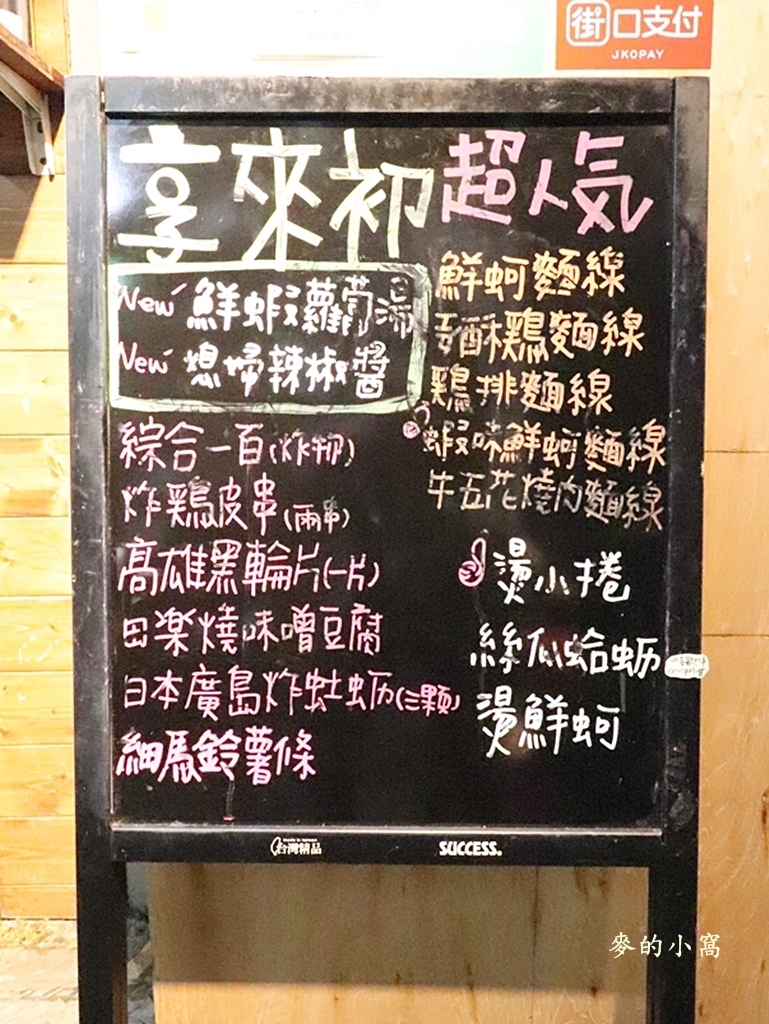 街口支付
JKOPAY
享來初 超人気
New 鮮蝦蘿蔔湯
New 媳婦辣椒醬
綜合一百(炸物)
炸鶏皮串(兩串)
高雄黑輪片(一片)
田楽燒味噌豆腐
日本廣島炸牡蛎(三顆)
細馬鈴薯條
鮮蚵麵線
酥鶏麵線
鶏排麵線
蝦味鮮蚵麵線
牛五花燒肉麵線
燙小捲
絲瓜蛤蛎
燙鮮蚵
made in taiwan
台灣精品
SUCCESS®
麥的小窩